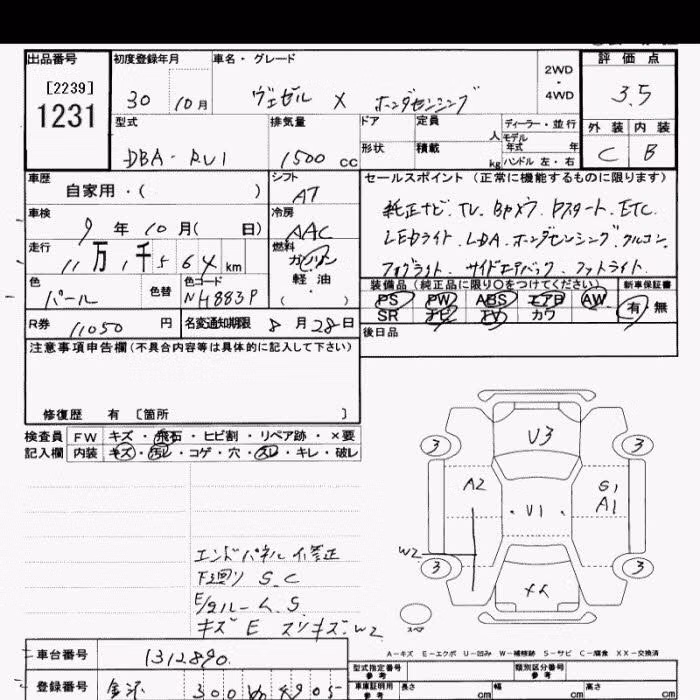 出品番号
[2239]
1231
初度登録年月
30 10月
車名・グレード
ヴェゼル X ホンダセンシング
2WD
・
4WD
評価点
3.5
外装 内装
C B
型式
DBA-RU1
排気量
1500 cc
ドア 定員 人
形状 積載 kg
ディーラー・並行
モデル年式 年
ハンドル 左・右
車歴
自家用・( )
シフト
AT
車検
9年10月( 日)
冷房
AAC
走行
11万1千564km
燃料
ガソリン
軽油
( ・ )
色
パール
色替
色コード
NH883P
R券
11050円
名変通知期限 8月28日
セールスポイント (正常に機能するものに限ります)
純正ナビ.TV.Bカメラ.Pスタート.ETC.
LEDライト.LDA.ホンダセンシング.クルコン.
フォグライト.サイドエアバック.フットライト.
装備品(純正品に限り○をつけてください)
PS PW ABS エアB AW
SR ナビ TV カワ
新車保証書
有 無
後日品
注意事項申告欄(不具合内容等は具体的に記入して下さい)
修復歴 有 [箇所 ]
検査員記入欄
FW キズ・飛石・ヒビ割・リペア跡・×要
内装 キズ・汚レ・コゲ・穴・スレ・キレ・破レ
エンドパネル 修正
下廻り S.C
E/gルーム.S.
キズ E スリキズ.W2
U3
3 3
A2
G1
A1
・U1・
W2
3 3
XX
スペア
A-キズ E-エクボ U-凹み W-補修跡 S-サビ C-腐食 XX-交換済
車台番号
1312890.
登録番号
金沢 300
型式指定番号 参考
類別区分番号 参考
車庫証明用 参考 長さ cm 幅 cm 高さ cm